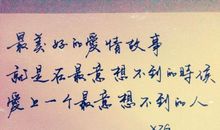 最美好的愛情故事
就是在最意想不到的時候
愛上一个最意想不到的人